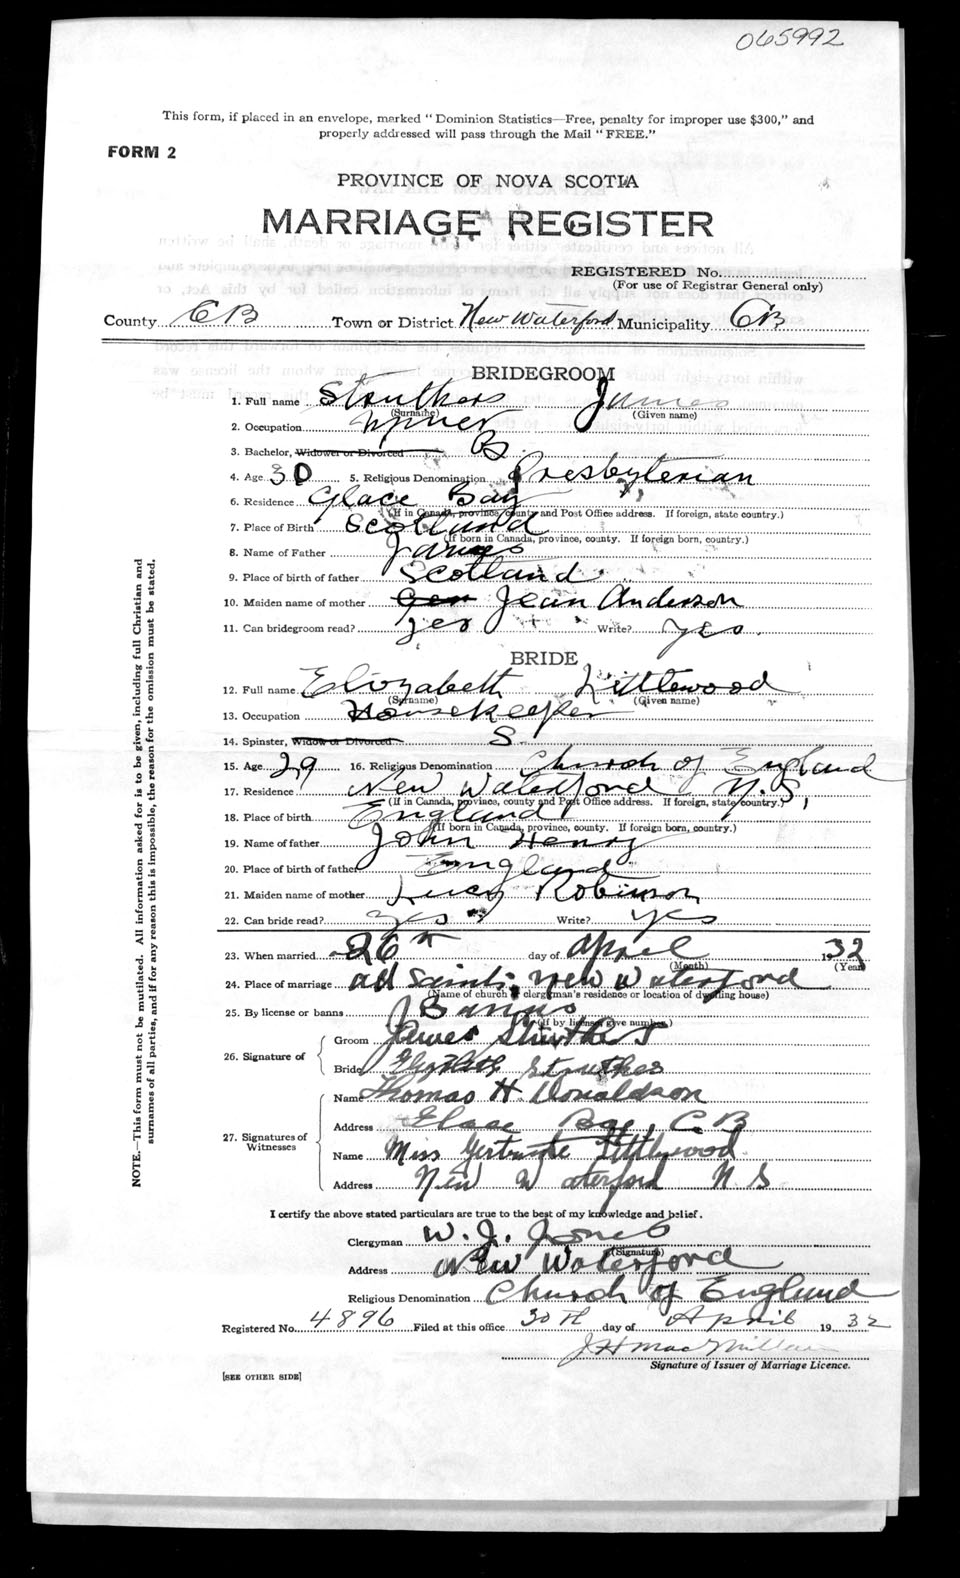 065992
This form, if placed in an envelope, marked " Dominion Statistics—Free, penalty for improper use $300," and
properly addressed will pass through the Mail " FREE."
FORM 2
PROVINCE OF NOVA SCOTIA
MARRIAGE REGISTER
REGISTERED No.
(For use of Registrar General only)
County CB Town or District New Waterford Municipality CB
BRIDEGROOM
1. Full name Struthers James
(Surname) (Given name)
2. Occupation Miner
3. Bachelor, Widower or Divorced B
4. Age 30 5. Religious Denomination Presbyterian
6. Residence Glace Bay
(If in Canada, province, county and Post Office address. If foreign, state country.)
7. Place of Birth Scotland
(If born in Canada, province, county. If foreign born, country.)
8. Name of Father James
9. Place of birth of father Scotland
10. Maiden name of mother Jean Anderson
11. Can bridegroom read? yes Write? yes.
BRIDE
12. Full name Elizabeth Littlewood
(Surname) (Given name)
13. Occupation Housekeeper
14. Spinster, Widow or Divorced S
15. Age 29 16. Religious Denomination Church of England
17. Residence New Waterford N.S,
(If in Canada, province, county and Post Office address. If foreign, state country.)
18. Place of birth England
(If born in Canada, province, county. If foreign born, country.)
19. Name of father John Henry
20. Place of birth of father England
21. Maiden name of mother Lucy Robinson
22. Can bride read? yes Write? yes
23. When married 26th day of April 1932
(Month) (Year)
24. Place of marriage All Saints, New Waterford
(Name of church or clergyman's residence or location of dwelling house)
25. By license or banns Banns
(If by license, give number.)
26. Signature of
Groom James Struthers
Bride Elizabeth Struthers
27. Signatures of Witnesses
Name Thomas H. Donaldson
Address Glace Bay, C.B
Name Miss Gertrude Littlewood
Address New Waterford N.S
I certify the above stated particulars are true to the best of my knowledge and belief.
Clergyman W. J. Jones
(Signature)
Address New Waterford
Religious Denomination Church of England
Registered No. 4896 Filed at this office 30th day of April 1932
J H MacMillan
Signature of Issuer of Marriage Licence.
[SEE OTHER SIDE]
NOTE.—This form must not be mutilated. All information asked for is to be given, including full Christian and
surnames of all parties, and if for any reason this is impossible, the reason for the omission must be stated.